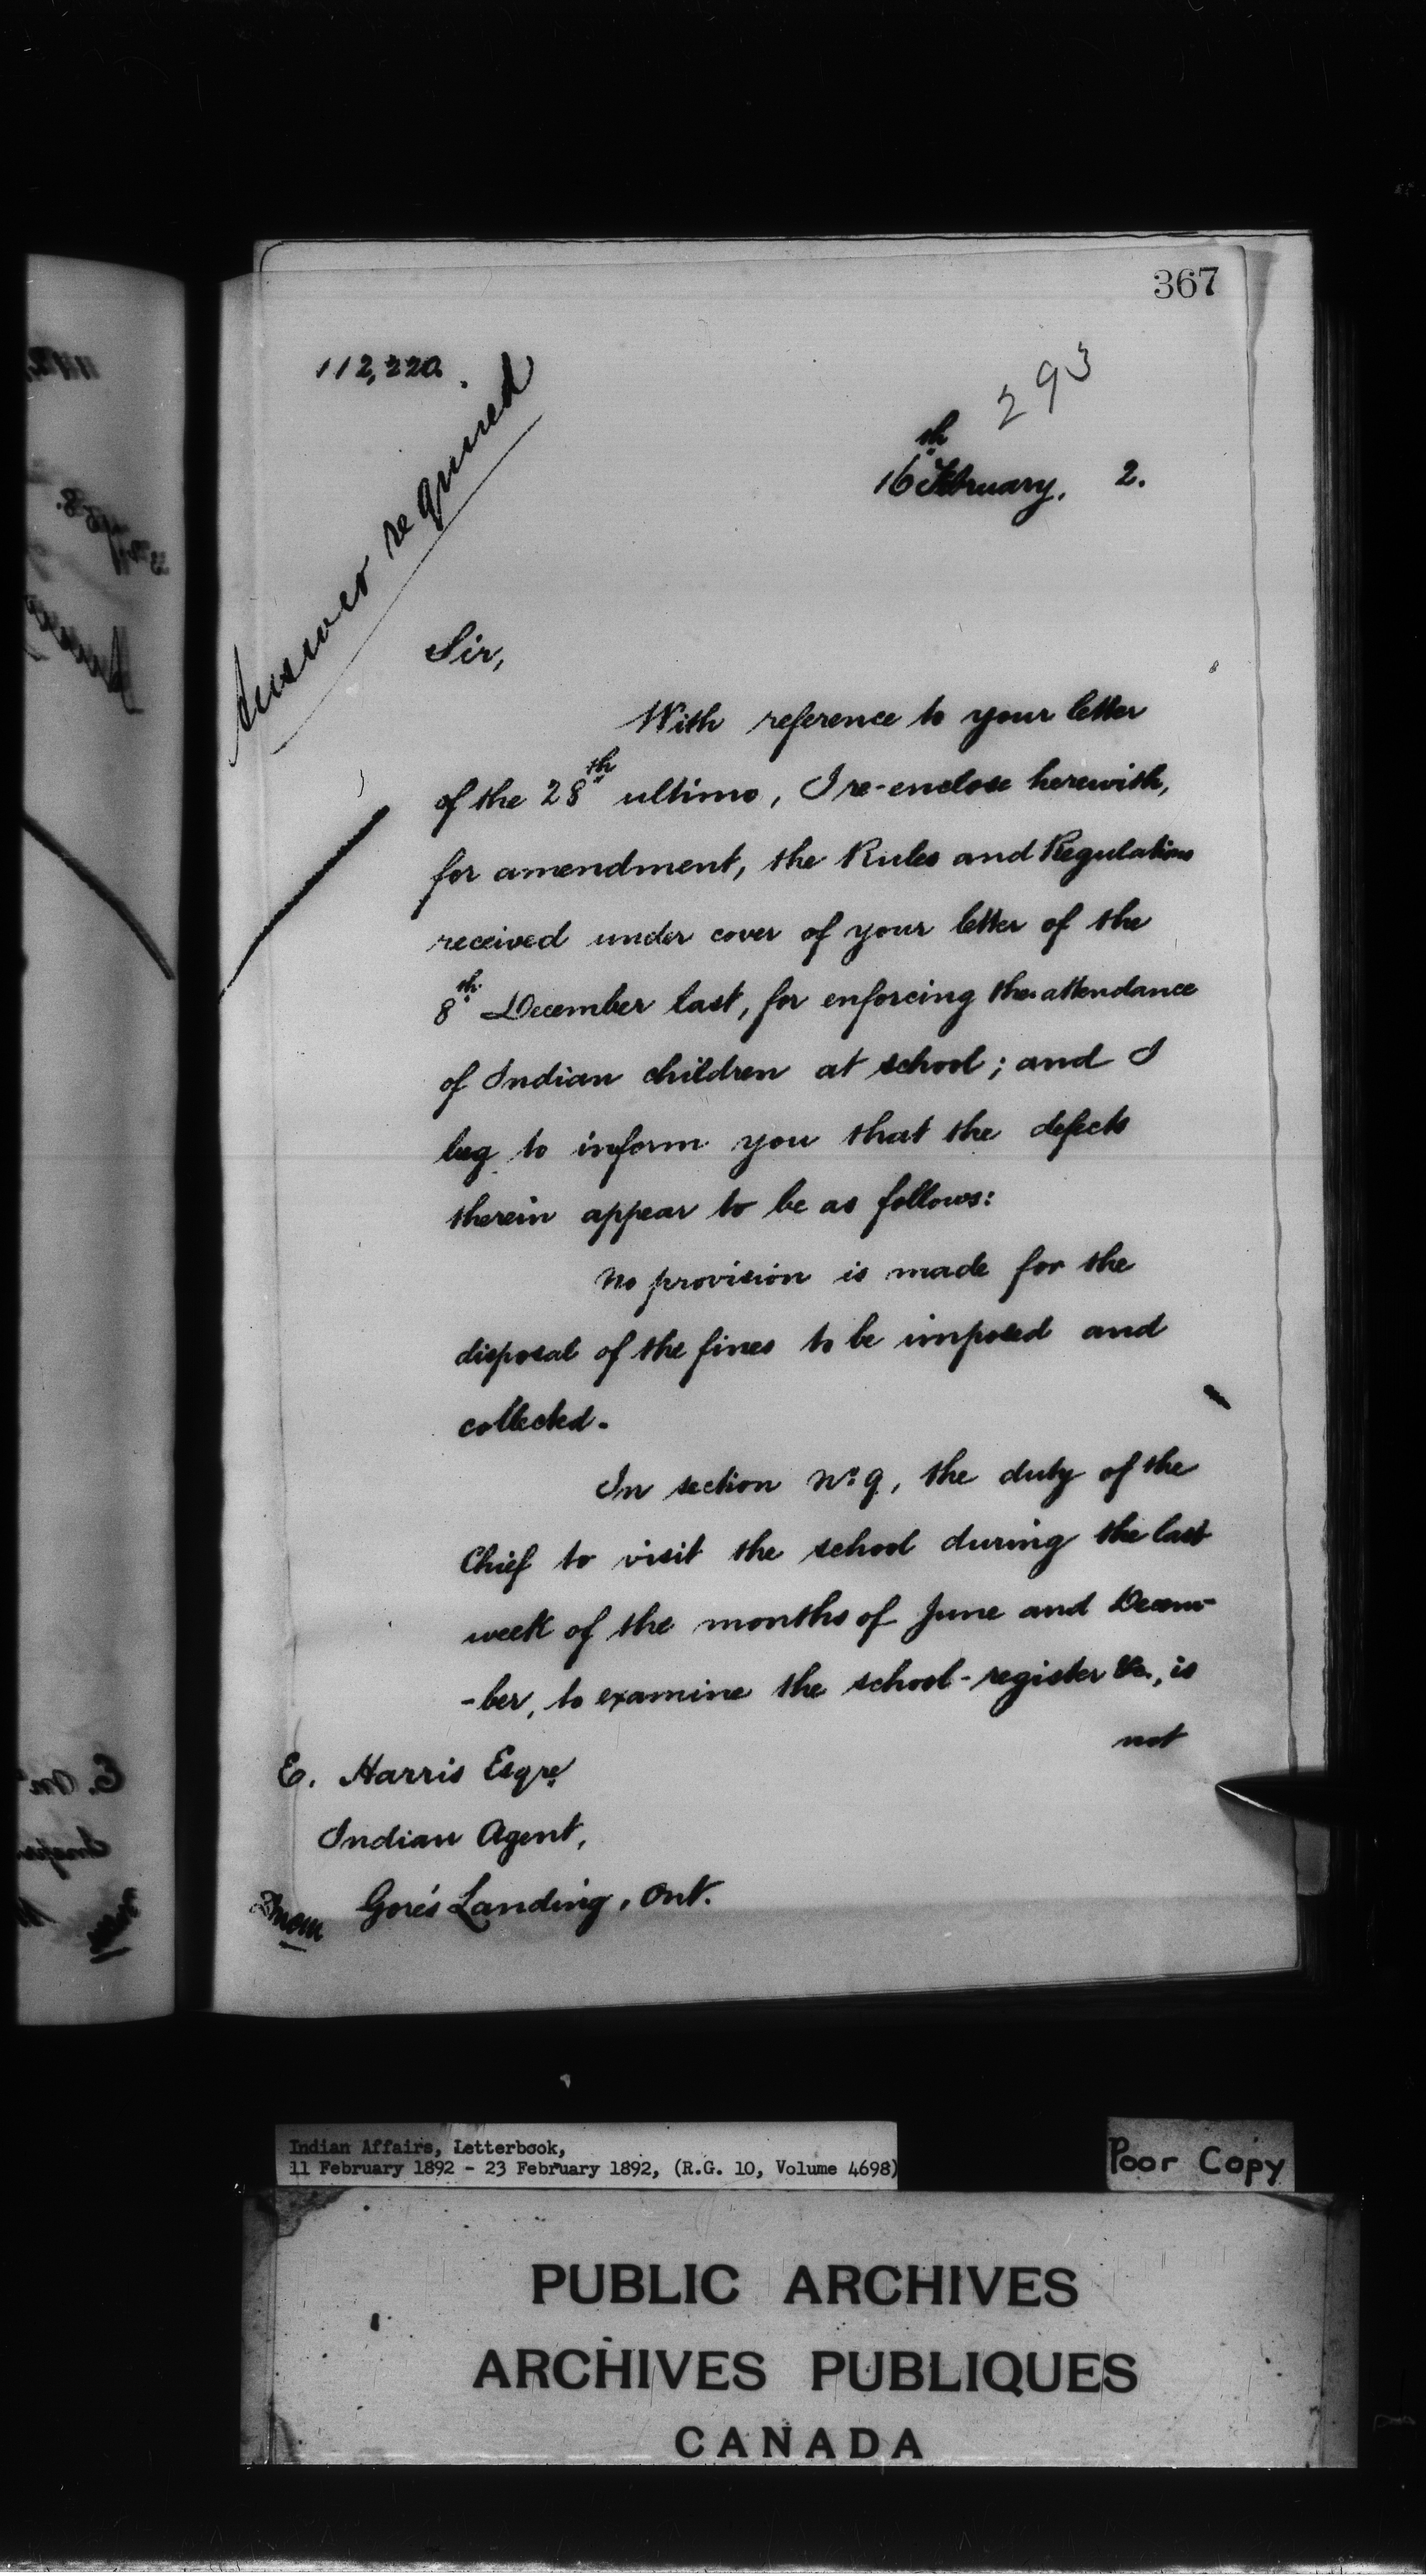 367
112,220.
293
Answer required
16th February, 2.
Sir,
With reference to your letter
of the 28th ultimo, I re-enclose herewith,
for amendment, the Rules and Regulations
received under cover of your letter of the
8th December last, for enforcing the attendance
of Indian children at school; and I
beg to inform you that the defects
therein appear to be as follows:
No provision is made for the
disposal of the fines to be imposed and
collected.
In section No. 9, the duty of the
Chief to visit the school during the last
week of the months of June and Decem-
-ber, to examine the school-register &c., is
not
E. Harris Esqre
Indian Agent,
Gore's Landing, Ont.
Indian Affairs, Letterbook,
11 February 1892 - 23 February 1892, (R.G. 10, Volume 4698)
Poor Copy
PUBLIC ARCHIVES
ARCHIVES PUBLIQUES
CANADA